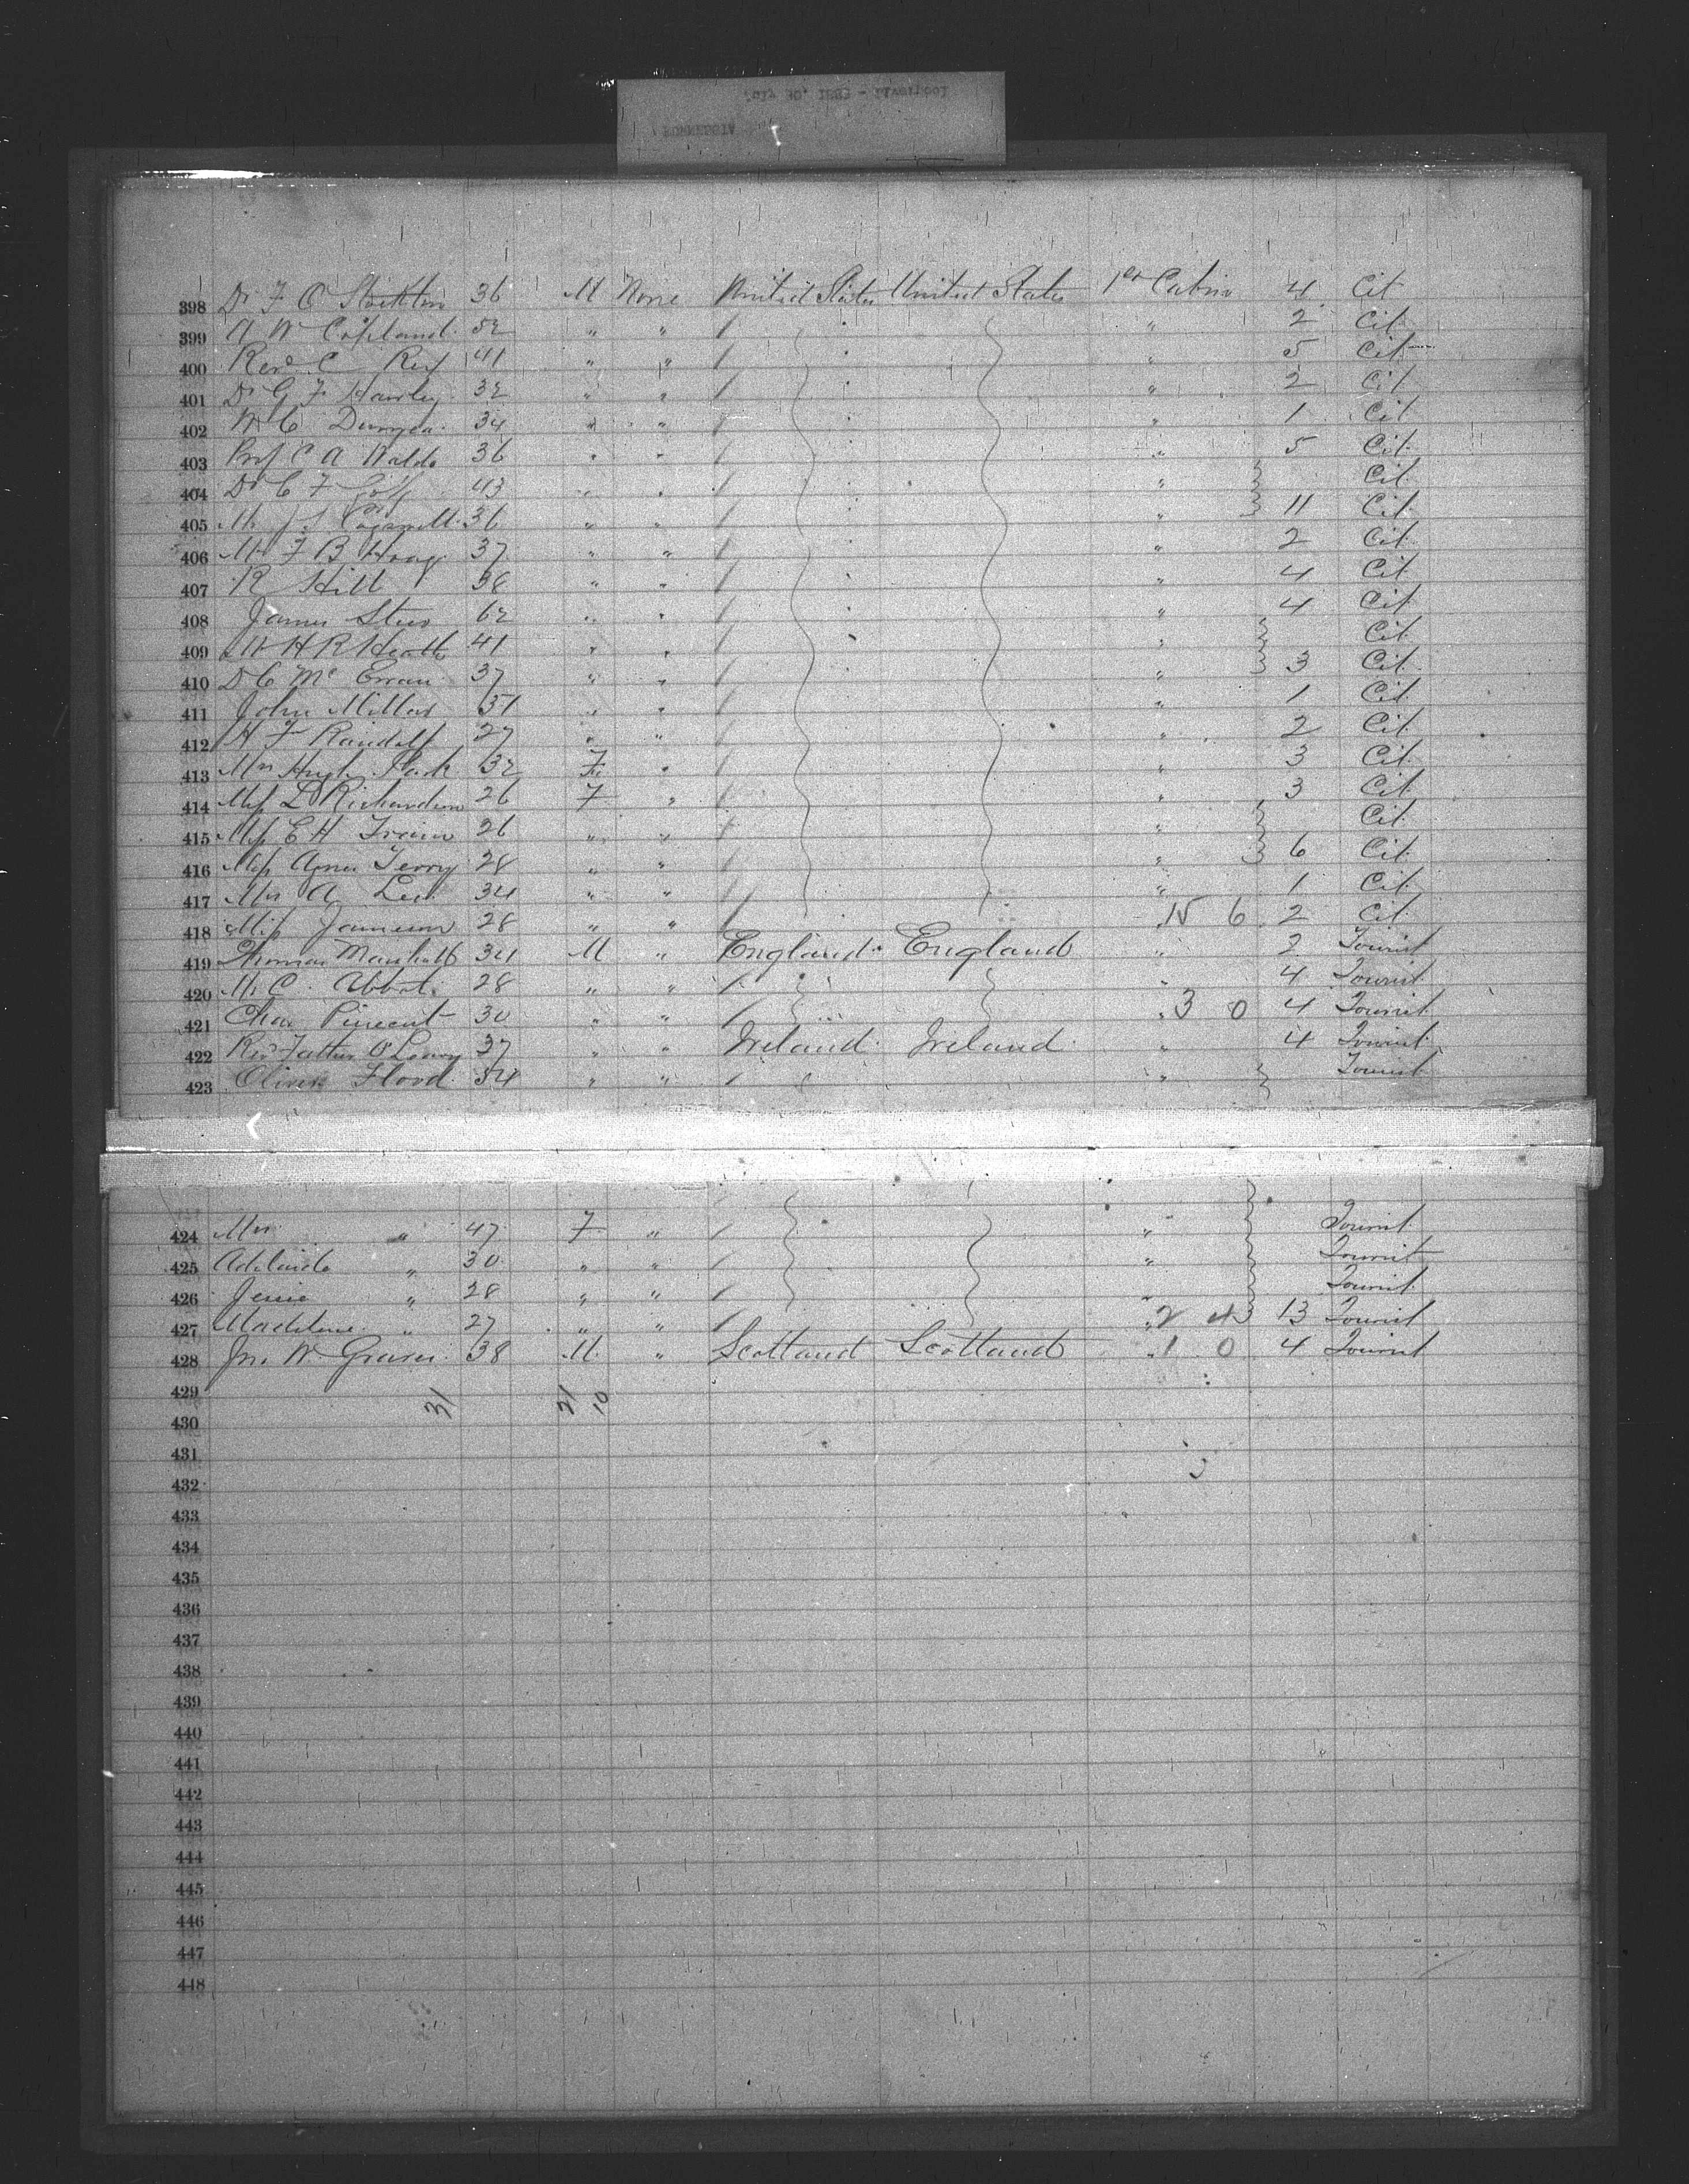 398 Dr F O Stockton 36 M None United States United States 1st Cabin 4 Cit
399 A W Copland 52 " " " 2 Cit
400 Revd C Rex 41 " " " 5 Cit
401 Dr G F Hawley 32 " " " 2 Cit
402 W C 34 " " " 1 Cit
403 Prof C A Waldo 36 " " " 5 Cit
404 Dr C F 43 " " " Cit
405 Mr J S Cogswell 36 " " " 11 Cit
406 Mr F B Hoag 37 " " " 2 Cit
407 R Hill 38 " " " 4 Cit
408 James 62 " " " 4 Cit
409 Mr H R Heath 41 " " " Cit
410 D C Mc 37 " " " 3 Cit
411 John Miller 51 " " " 1 Cit
412 H F Randolf 27 " " " 2 Cit
413 Mrs Hugh 32 F " " 3 Cit
414 Miss L Richardson 26 F " " 3 Cit
415 Miss E H 26 " " " Cit
416 Miss Agnes Terry 28 " " " 6 Cit
417 Mrs A Lee 34 " " " 1 Cit
418 Miss Jameson 28 " " 15 6 2 Cit
419 Thomas Marshall 34 M " England England " 2 Tourist
420 H. C. Abbot 28 " " " 4 Tourist
421 Chas Pinecent 30 " " " 3 0 4 Tourist
422 Rev Father O'Leary 37 " " Ireland Ireland " 4 Tourist
423 Oliver Flood 54 " " " Tourist
424 Mrs " 47 F " " Tourist
425 Adelaide " 30 " " " Tourist
426 Jessie " 28 " " " Tourist
427 Madeline " 27 " " " 2 4 13 Tourist
428 Jn. W Graves 38 M " Scotland Scotland " 1 0 4 Tourist
429 31 21 10
430
431
432
433
434
435
436
437
438
439
440
441
442
443
444
445
446
447
448